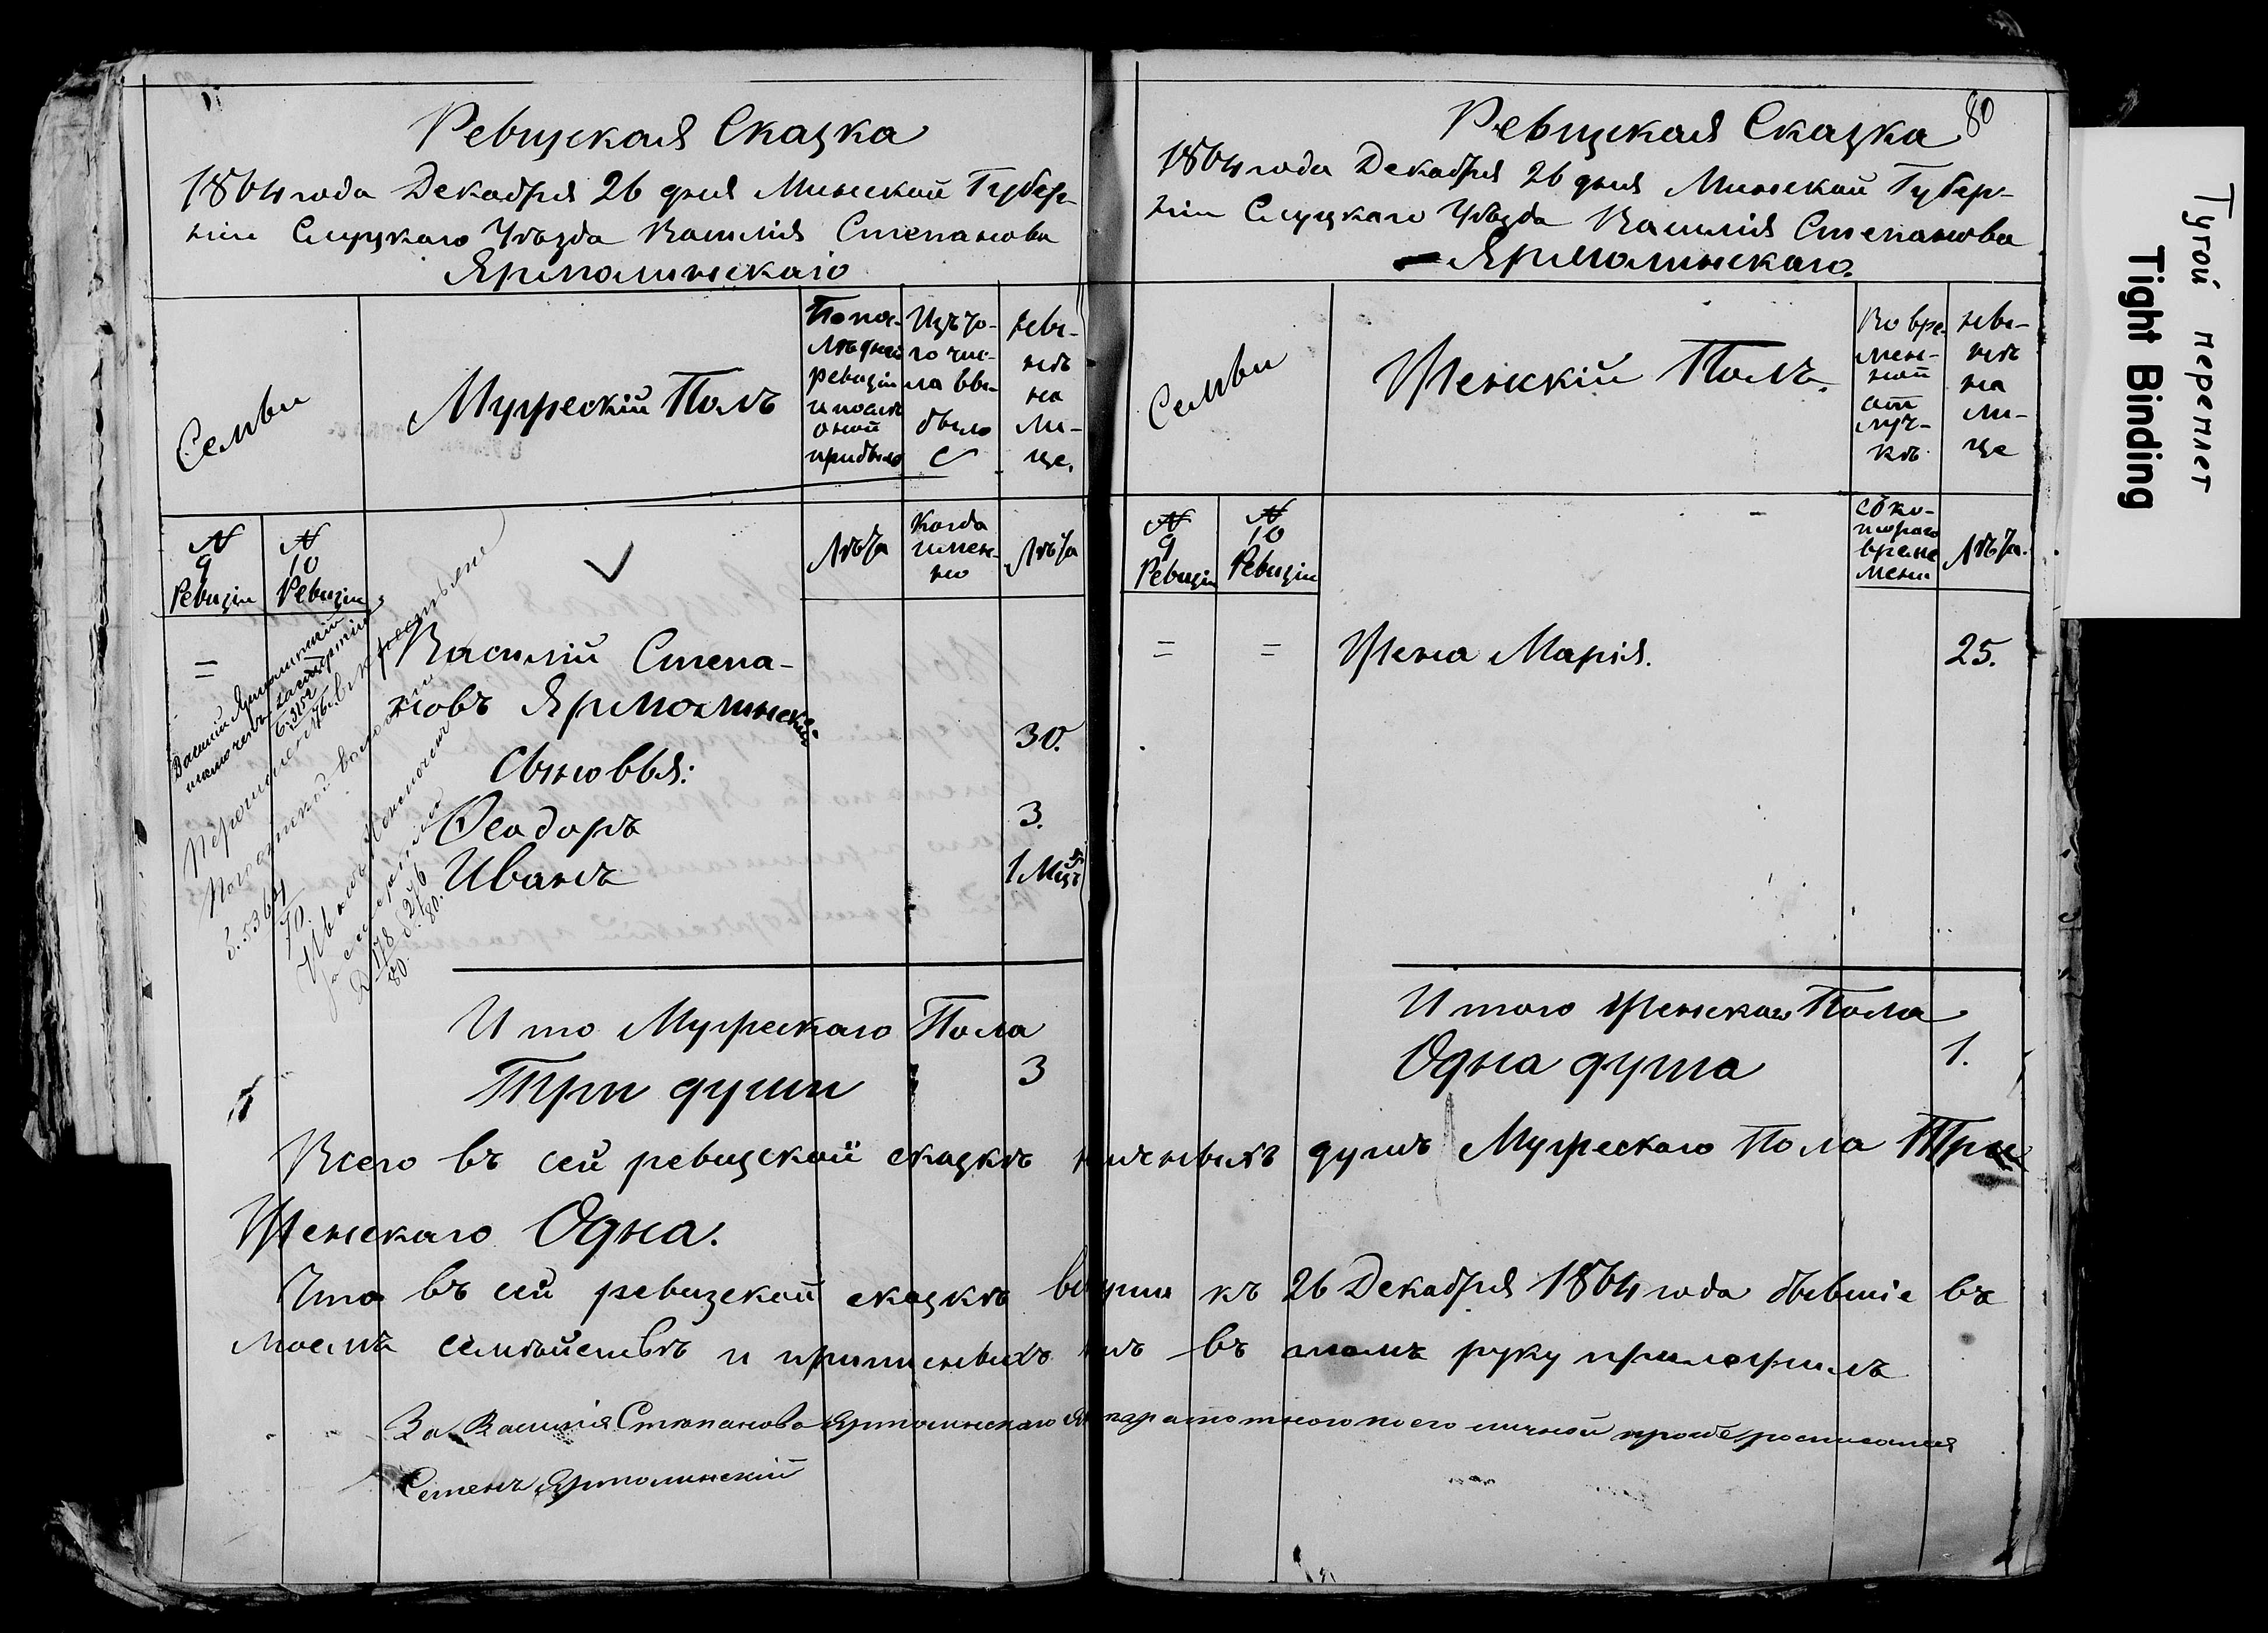 Ревизская Сказка
1864 года Декабря 26 дня Минской Губер-
ніи Слуцкаго Уѣзда Василія Степанова
Ярмолинскаго
Семьи
Мужескій Полъ
По по-
слѣдней
ревизіи
и послѣ
оной
прибыло
Изъ то-
го чис-
ла вы-
было
Нынѣ
на
ли-
це.
№
9
Ревизіи
№
10
Ревизіи
Лѣта
Когда
имен-
но
Лѣта
=
Василій Степа-
новъ Ярмолинскій
30.
Сыновья:
Ѳеодоръ
3.
Иванъ
1 Мцъ
Итого Мужескаго Пола
Три души
3
80
Ревизская Сказка
1864 года Декабря 26 дня Минской Губер-
ніи Слуцкаго Уѣзда Василія Степанова
Ярмолинскаго.
Семьи
Женскій Полъ.
Во вре-
мен-
ной
от
луч-
кѣ
Нынѣ
на
ли-
це
№
9
Ревизіи
№
10
Ревизіи
Съ ко-
тораго
време
мени
Лѣта.
=
=
Жена Марія.
25.
Итого Женскаго Пола
Одна душа
1.
Всего въ сей ревизской сказкѣ наличныхъ душъ Мужескаго Пола Три
Женскаго Одна.
Что въ сей ревизской сказкѣ къ 26 Декабря 1864 года бывшіе въ
моемъ семѣйствѣ и въ томъ руку приложилъ
За Василія Степанова Ярмолинскаго неграмотнаго по его личной прозбе росписался
Семенъ Ярмолинскій
Тугой переплет
Tight Binding